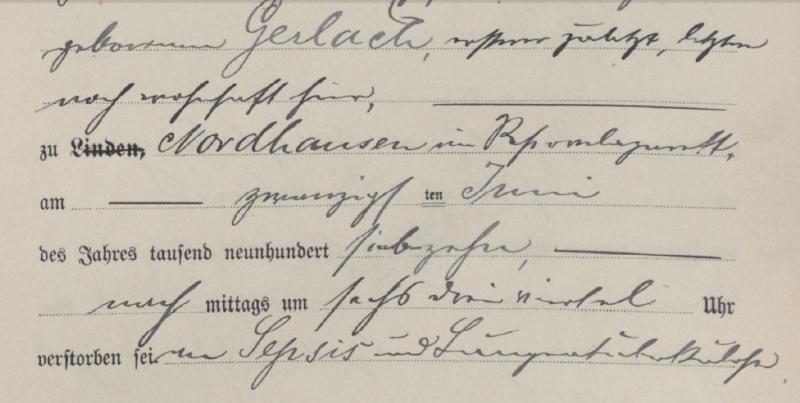 geborenen Gerlach, ersterer zuletzt, letztere
noch wohnhaft hier,
zu Linden, Nordhausen im Reservelazarett,
am zwanzigsten Juni
des Jahres tausend neunhundert siebzehn,
nach mittags um sechs drei viertel Uhr
verstorben sei an Sepsis und Lungentuberkulose